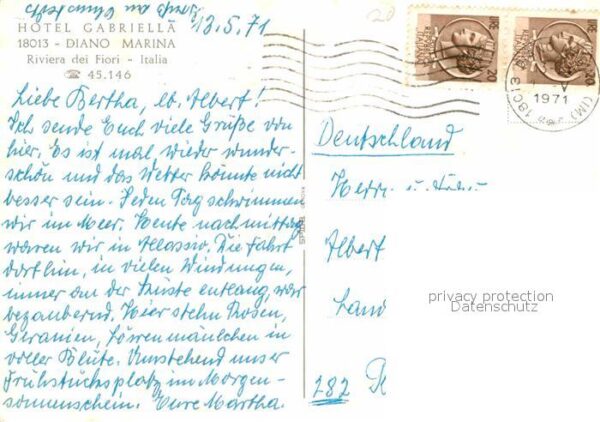 HOTEL GABRIELLA
18013 - DIANO MARINA
Riviera dei Fiori - Italia
☎ 45.146
13.5.71
Liebe Bertha, lb. Albert!
Ich sende Euch viele Grüße von
hier. Es ist mal wieder wunder-
schön und das Wetter könnte nicht
besser sein. Jeden Tag schwimmen
wir im Meer. Heute nachmittag
waren wir in Alassio. Die Fahrt
dorthin, in vielen Windungen,
immer an der Küste entlang, war
bezaubernd. Hier stehn Rosen,
Geranien, Löwenmäulchen in
voller Blüte. Umstehend unser
Frühstücksplatz im Morgen-
sonnenschein. Eure Martha.
20
18013
1971
(IM)
Deutschland
Herrn u. Frau
Albert
Land
282
privacy protection
Datenschutz